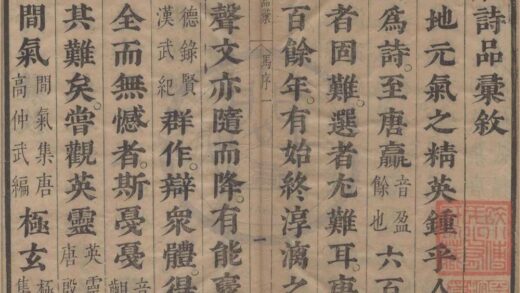 詩品彙敘
地元氣之精英鍾乎人
爲詩。至唐贏音盈餘也六百
者固難。選者尤難耳。
百餘年。有始終淳漓之
品彙 馬序 一
一
聲文亦隨而降。有能裒
德錄賢漢武紀群作。辯衆體。得
全而無憾者。斯戞戞音觀
其難矣。嘗觀英靈英靈唐殷
間氣間氣集唐高仲武編極玄極集